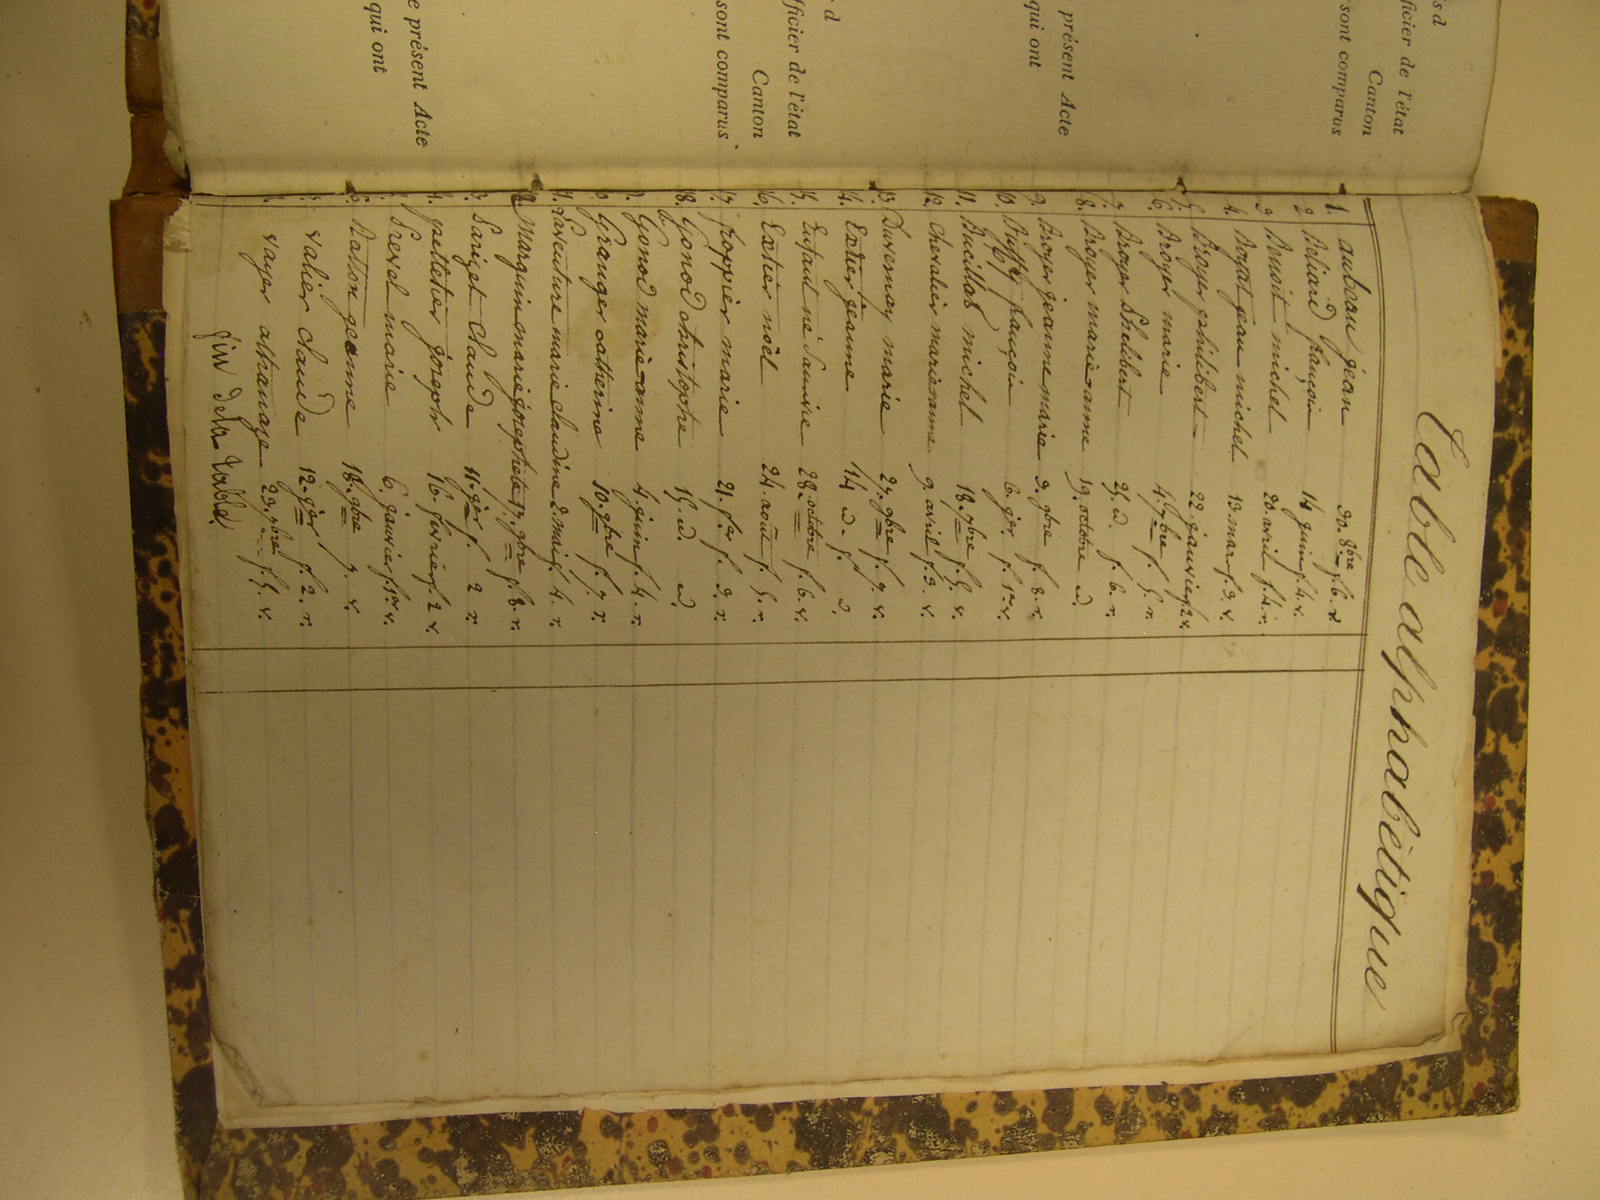 is d
fficier de l'état
Canton
sont comparus
présent Acte
qui ont
d
fficier de l'état
Canton
sont comparus
e présent Acte
qui ont
Table alphabétique
1. aubeau jean 30. 8bre f. 6. v.
2 Beliard françois 14 juin f. 4. v.
3 Benoit michel 20 avril f. 4. r.
4. Boyat jean michel 13 mars f. 3. v.
5. Broyer philibert 22. janvier f. 2 v.
6. Broyer marie 4. 7bre f. 5. r.
7. Broyer Philibert 25. d. f. 6. r.
8. Broyer marie-anne 19. octobre d.
9. Broyer jeanne marie 3. 9bre f. 8. r.
10. Buffy françois 6. jer f. 1er v.
11. Bucillat michel 18. 7bre f. 5. v.
12. Chevalier marie-anne 9 avril f. 3. v.
13 Duvernay marie 27. 9bre f. 7. v.
14. Extier jeanne 14 d. f. d.
15. Enfant né Sauvie 28. octobre f. 6. v.
16. Extier noël 24. août f. 5. r.
17. foppier marie 21. f. 3. r.
18. Gonod christophe 15. d. d.
9. Gonod marie-anne 4. juin f. 4. r.
Granger catherine 10. 9bre f. 7. r.
1. Laventure marie claudine 2 mai f. 4. r.
2. Marguin marie josephete 17. 9bre f. 8. r.
3. Parizet Claude 11. jer f. 2 r.
4. pelletier joseph 16. février f. 2 v.
Prevel marie 6. janvier f. 1er v.
Ratton jeanne 18. 9bre 7. v.
valier claude 12. jer f. 2. r.
vayer athanaze 23. 7bre f. 5. v.
fin de la Table.